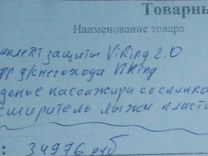 Товарны
Наименование товара
мплект защиты ViKing 2.0
д/снегохода ViKing
денье пассажира со спинко
сширитель лыжи пласти
: 34976 руб